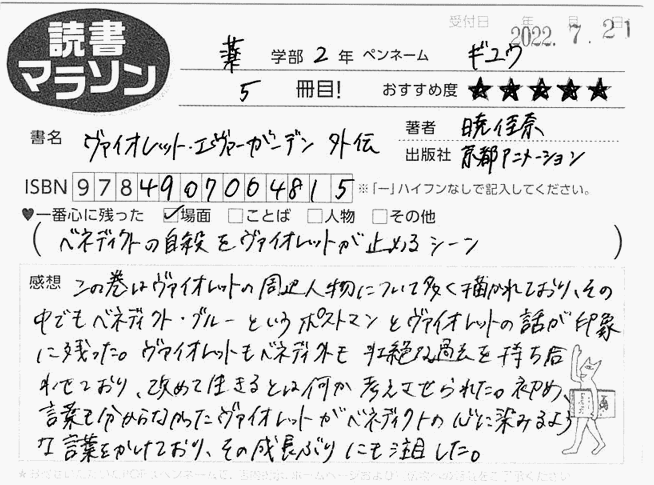 読書
マラソン
受付日 年 月 日
2022.7.21
薬 学部 2 年 ペンネーム ギユウ
5 冊目! おすすめ度 ★★★★★
書名 ヴァイオレット・エヴァーガーデン 外伝
著者 暁佳奈
出版社 京都アニメーション
ISBN 9784907064815 ※「ー」ハイフンなしで記入してください。
♥一番心に残った ☑場面 □ことば □人物 □その他
(ベネディクトの自殺をヴァイオレットが止めるシーン)
感想 この巻はヴァイオレットの周辺人物について多く描かれており、その
中でもベネディクト・ブルーというポストマンとヴァイオレットの話が印象
に残った。ヴァイオレットもベネディクトも壮絶な過去を持ち合
わせており、改めて生きるとは何か考えさせられた。初め、
言葉も分からなかったヴァイオレットがベネディクトの心に染みるよう
な言葉をかけており、その成長ぶりにも注目した。